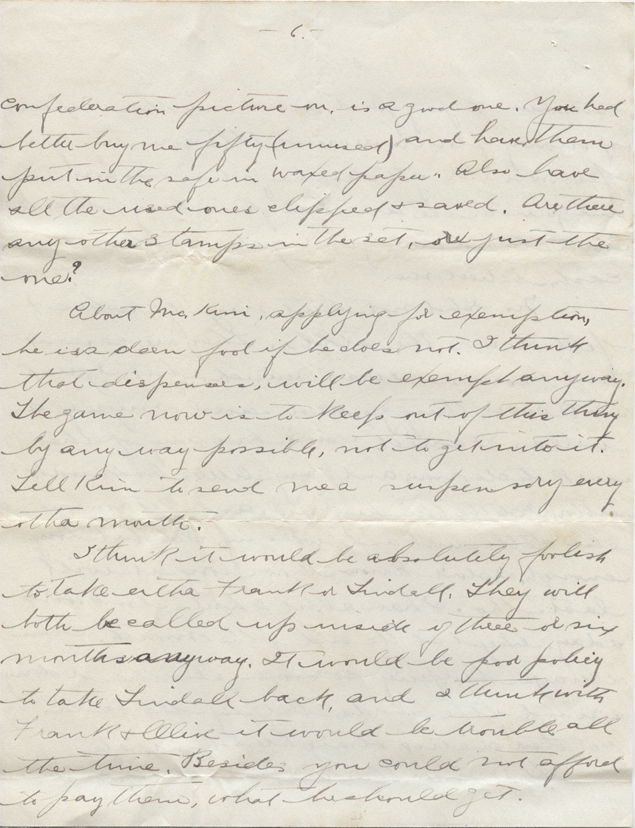 - 6. -
confederation picture on, is a good one. You had
better buy me fifty (unused) and have them
put in the safe in waxed paper. Also have
all the used ones clipped & saved. Are there
any other stamps in the set, or just the
one?
About Mr. Kini, applying for exemption,
he is a darn fool if he does not. I think
that dispensers, will be exempt anyway.
The game now is to keep out of this thing
by any way possible, not to get into it.
Tell Kini to send me a suspensory every
other month.
I think it would be absolutely foolish
to take either Frank or Lindall. They will
both be called up inside of three or six
months anyway. It would be poor policy
to take Lindall back, and I think with
Frank & it would be trouble all
the time. Besides you could not afford
to pay them, what he should get.